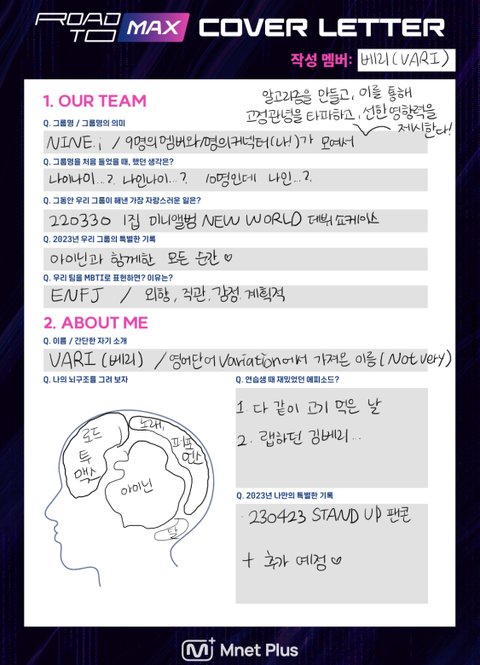 ROAD TO MAX COVER LETTER
작성 멤버: 베리(VARI)
1. OUR TEAM
알고리즘을 만들고, 이를 통해
고정관념을 타파하고, 선한 영향력을
제시한다!
Q. 그룹명 / 그룹명의 의미
NINE.i / 9명의 멤버와 1명의 커넥터(나!)가 모여서
Q. 그룹명을 처음 들었을 때, 했던 생각은?
나이나이...? 나인나이...? 10명인데 나인...?
Q. 그동안 우리 그룹이 해낸 가장 자랑스러운 일은?
220330 1집 미니앨범 NEW WORLD 데뷔 쇼케이스
Q. 2023년 우리 그룹의 특별한 기록
아이닌과 함께한 모든 순간 ♡
Q. 우리 팀을 MBTI로 표현하면? 이유는?
ENFJ / 외향, 직관, 감정, 계획적
2. ABOUT ME
Q. 이름 / 간단한 자기 소개
VARI (베리) / 영어단어 Variation에서 가져온 이름 (Not very)
Q. 나의 뇌구조를 그려 보자
로드
투
맥스
노래,
퍼포
먼스
아이닌
Q. 연습생 때 재밌었던 에피소드?
1. 다 같이 고기 먹은 날
2. 랩하던 김베리...
Q. 2023년 나만의 특별한 기록
· 230423 STAND UP 팬콘
+ 추가 예정 ♡
M Mnet Plus